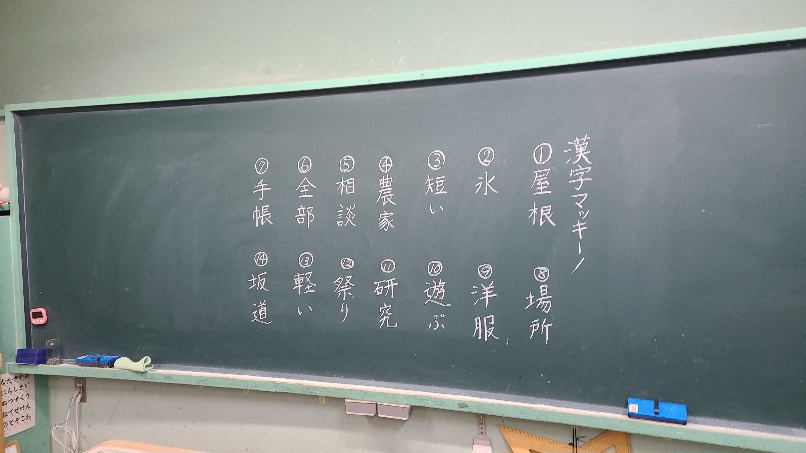 漢字マッキーノ
①屋根
②氷
③短い
④農家
⑤相談
⑥全部
⑦手帳
⑧場所
⑨洋服
⑩遊ぶ
⑪研究
⑫祭り
⑬軽い
⑭坂道